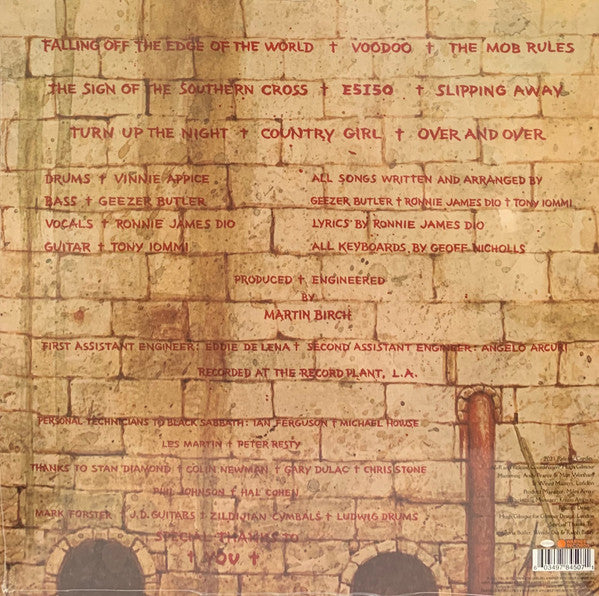 FALLING OFF THE EDGE OF THE WORLD † VOODOO † THE MOB RULES
THE SIGN OF THE SOUTHERN CROSS † E5150 † SLIPPING AWAY
TURN UP THE NIGHT † COUNTRY GIRL † OVER AND OVER
DRUMS † VINNIE APPICE
BASS † GEEZER BUTLER
VOCALS † RONNIE JAMES DIO
GUITAR † TONY IOMMI
ALL SONGS WRITTEN AND ARRANGED BY
GEEZER BUTLER † RONNIE JAMES DIO † TONY IOMMI
LYRICS BY RONNIE JAMES DIO
ALL KEYBOARDS BY GEOFF NICHOLLS
PRODUCED † ENGINEERED
BY
MARTIN BIRCH
FIRST ASSISTANT ENGINEER: EDDIE DE LENA † SECOND ASSISTANT ENGINEER: ANGELO ARCURI
RECORDED AT THE RECORD PLANT, L.A.
PERSONAL TECHNICIANS TO BLACK SABBATH: IAN FERGUSON † MICHAEL HOWSE
LES MARTIN † PETER RESTY
THANKS TO STAN DIAMOND † COLIN NEWMAN † GARY DULAC † CHRIS STONE
PHIL JOHNSON † HAL COHEN
MARK FORSTER † J.D. GUITARS † ZILDJIAN CYMBALS † LUDWIG DRUMS
SPECIAL THANKS TO
† YOU †
6 03497 84507 4